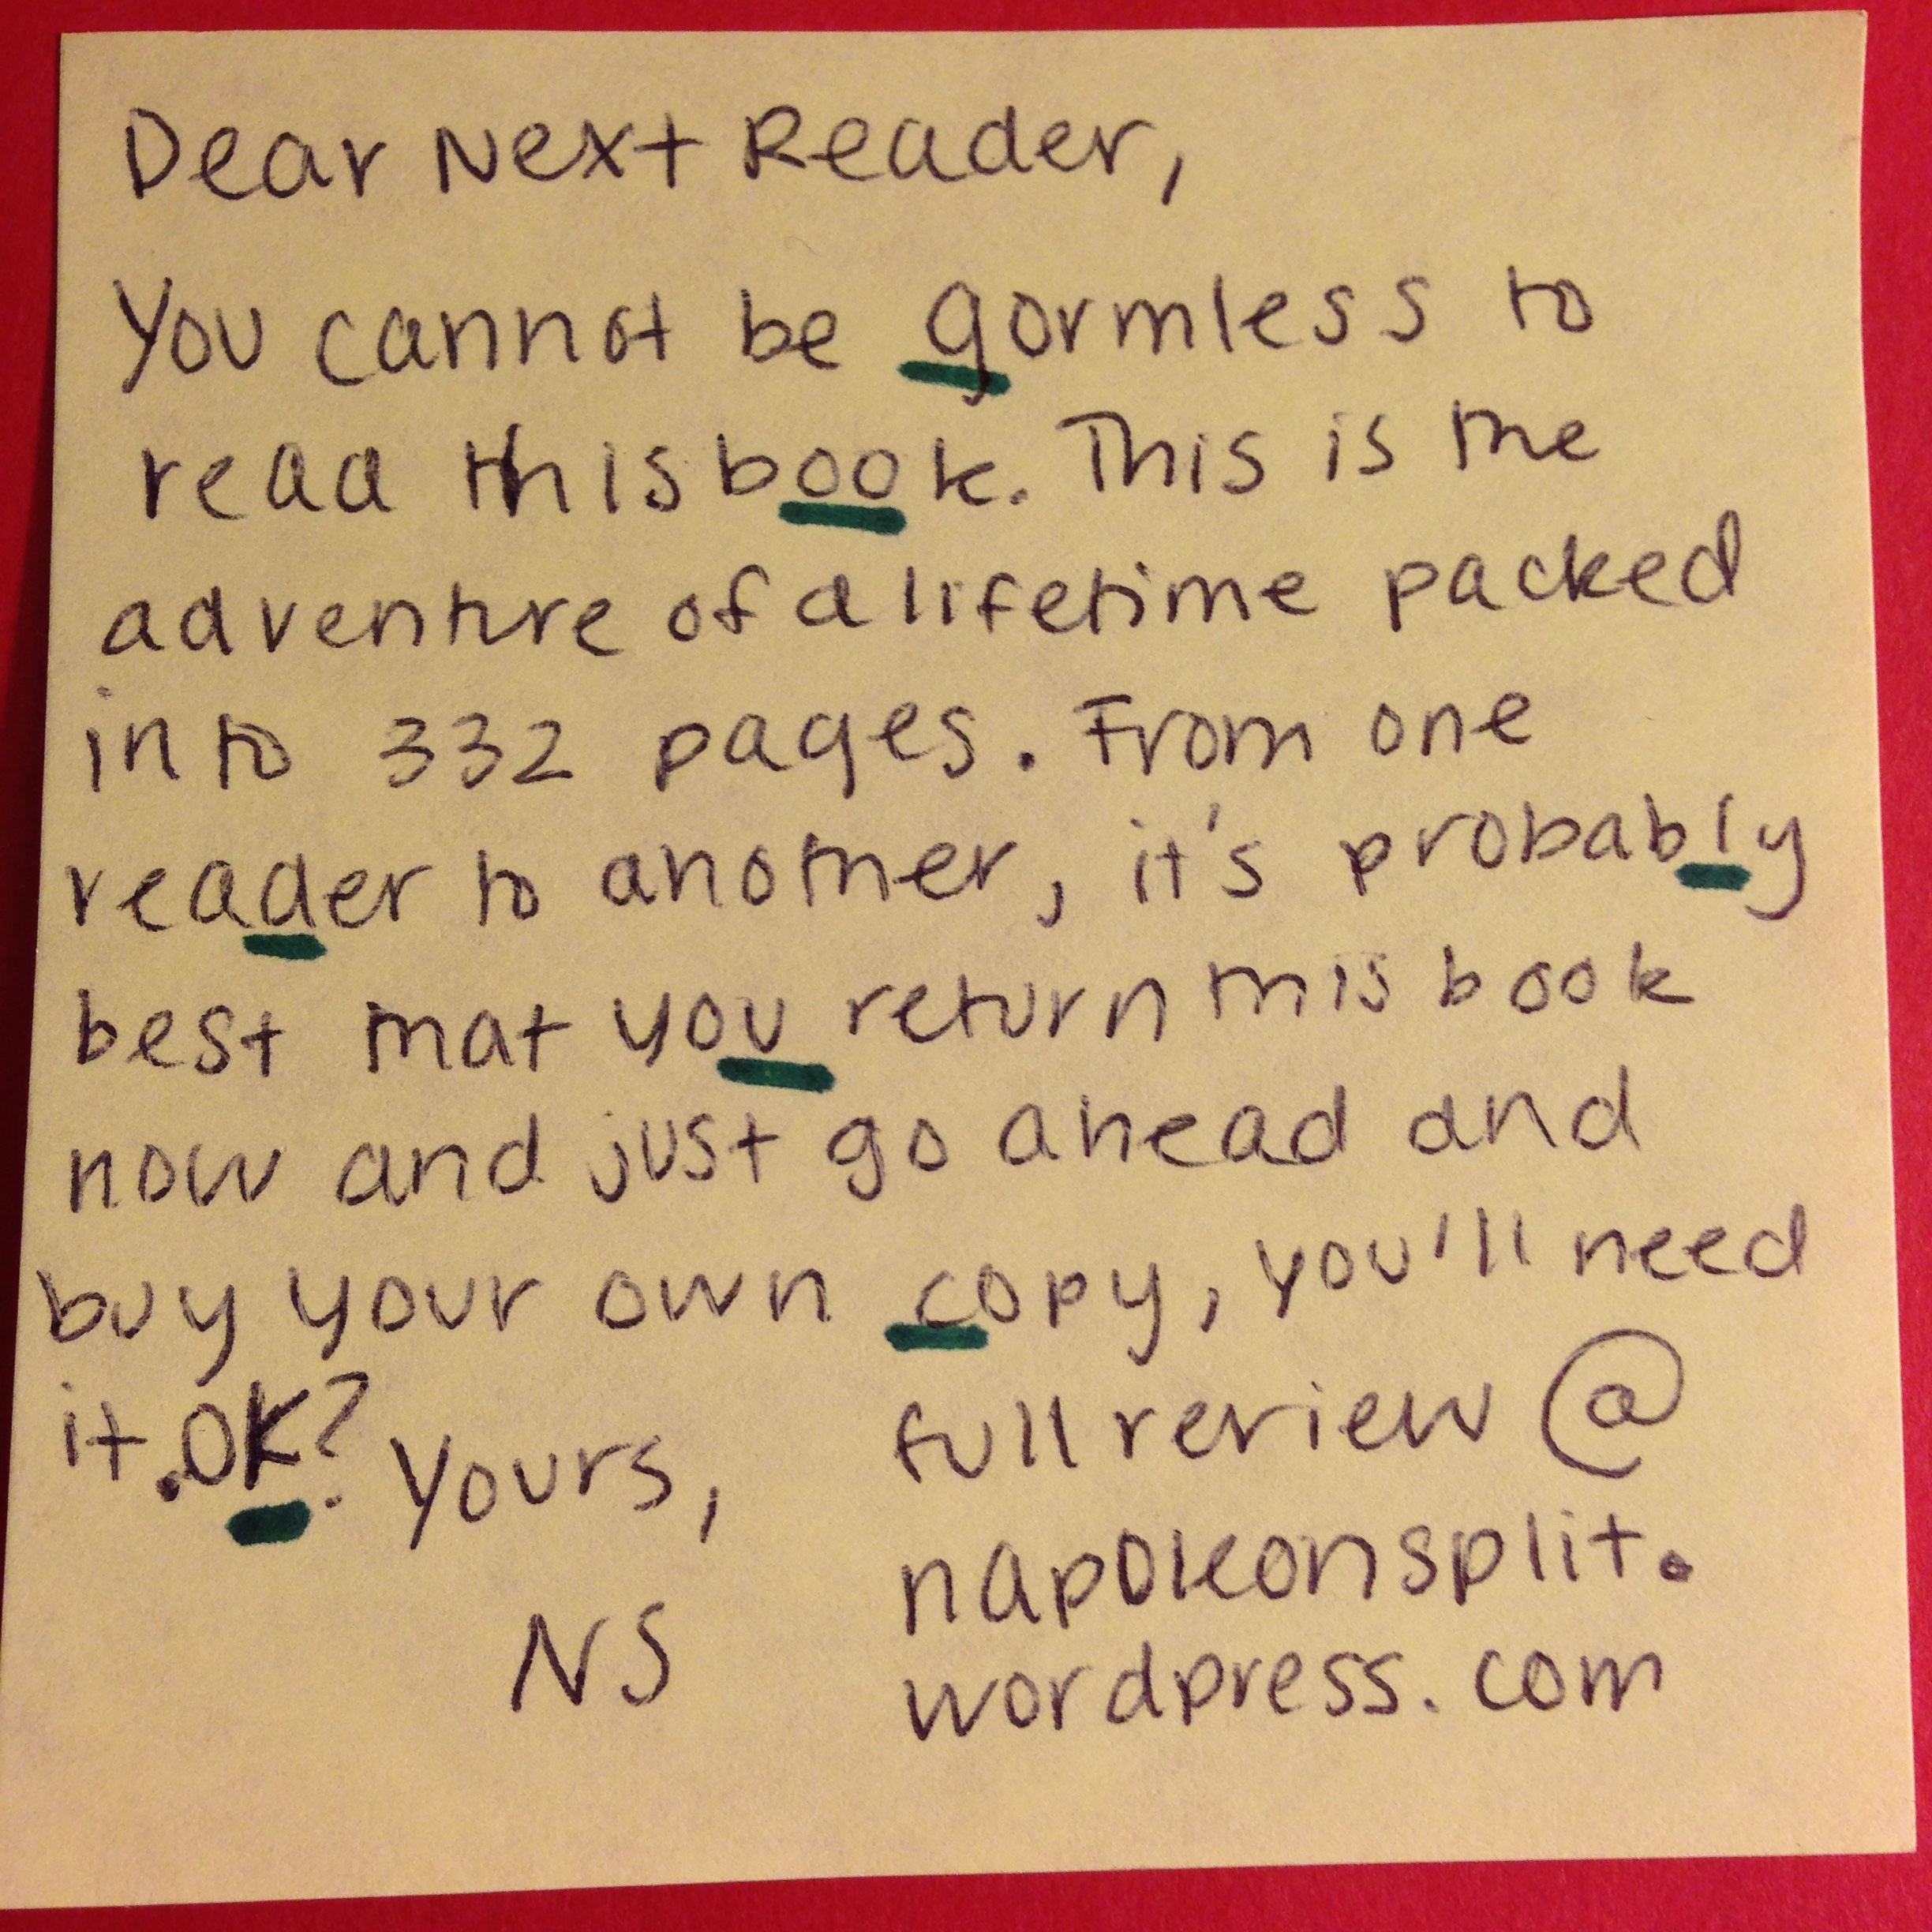 Dear Next Reader,
You cannot be gormless to
read this book. This is the
adventure of a lifetime packed
into 332 pages. From one
reader to another, it's probably
best that you return this book
now and just go ahead and
buy your own copy, you'll need
it. OK? Yours,
NS
full review @
napoleonsplit.
wordpress.com